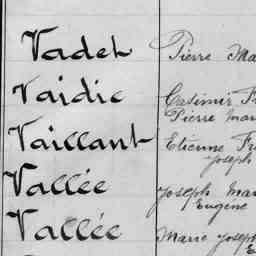 Vadet Pierre Ma
Vaidie Casimir Fr
Pierre Mari
Vaillant Etienne Fr
Joseph
Vallée Joseph Mar
Eugène
Vallée Marie Joseph